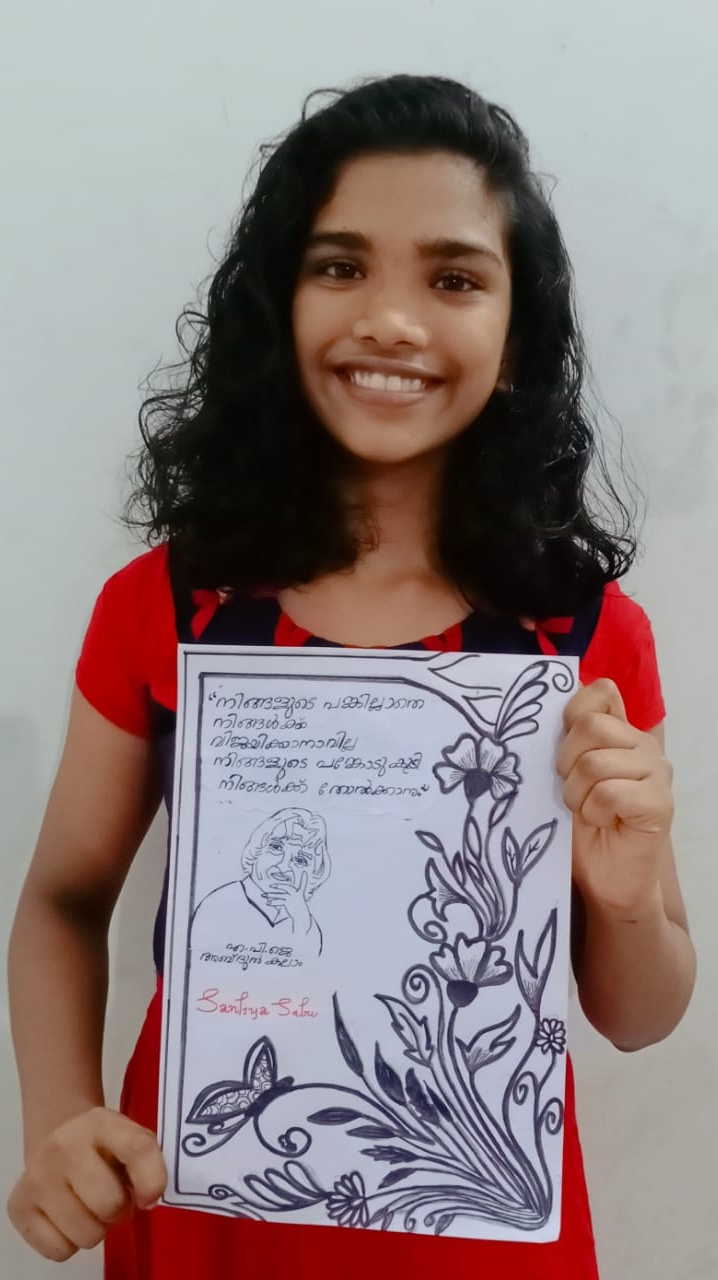 “നിങ്ങളുടെ പങ്കില്ലാതെ
നിങ്ങൾക്ക്
വിജയിക്കാനാവില്ല
നിങ്ങളുടെ പങ്കോടുകൂടി
നിങ്ങൾക്ക് തോൽക്കാനും”
എ.പി.ജെ
അബ്ദുൾ കലാം
Santiya Sabu